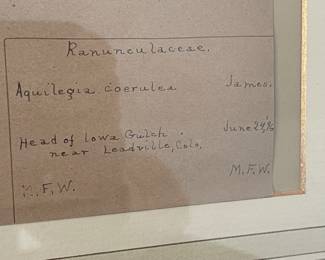 Ranunculaceae.
Aquilegia coerulea James.
Head of Iowa Gulch June 24,
near Leadville, Colo.
M.F.W.
M.F.W.